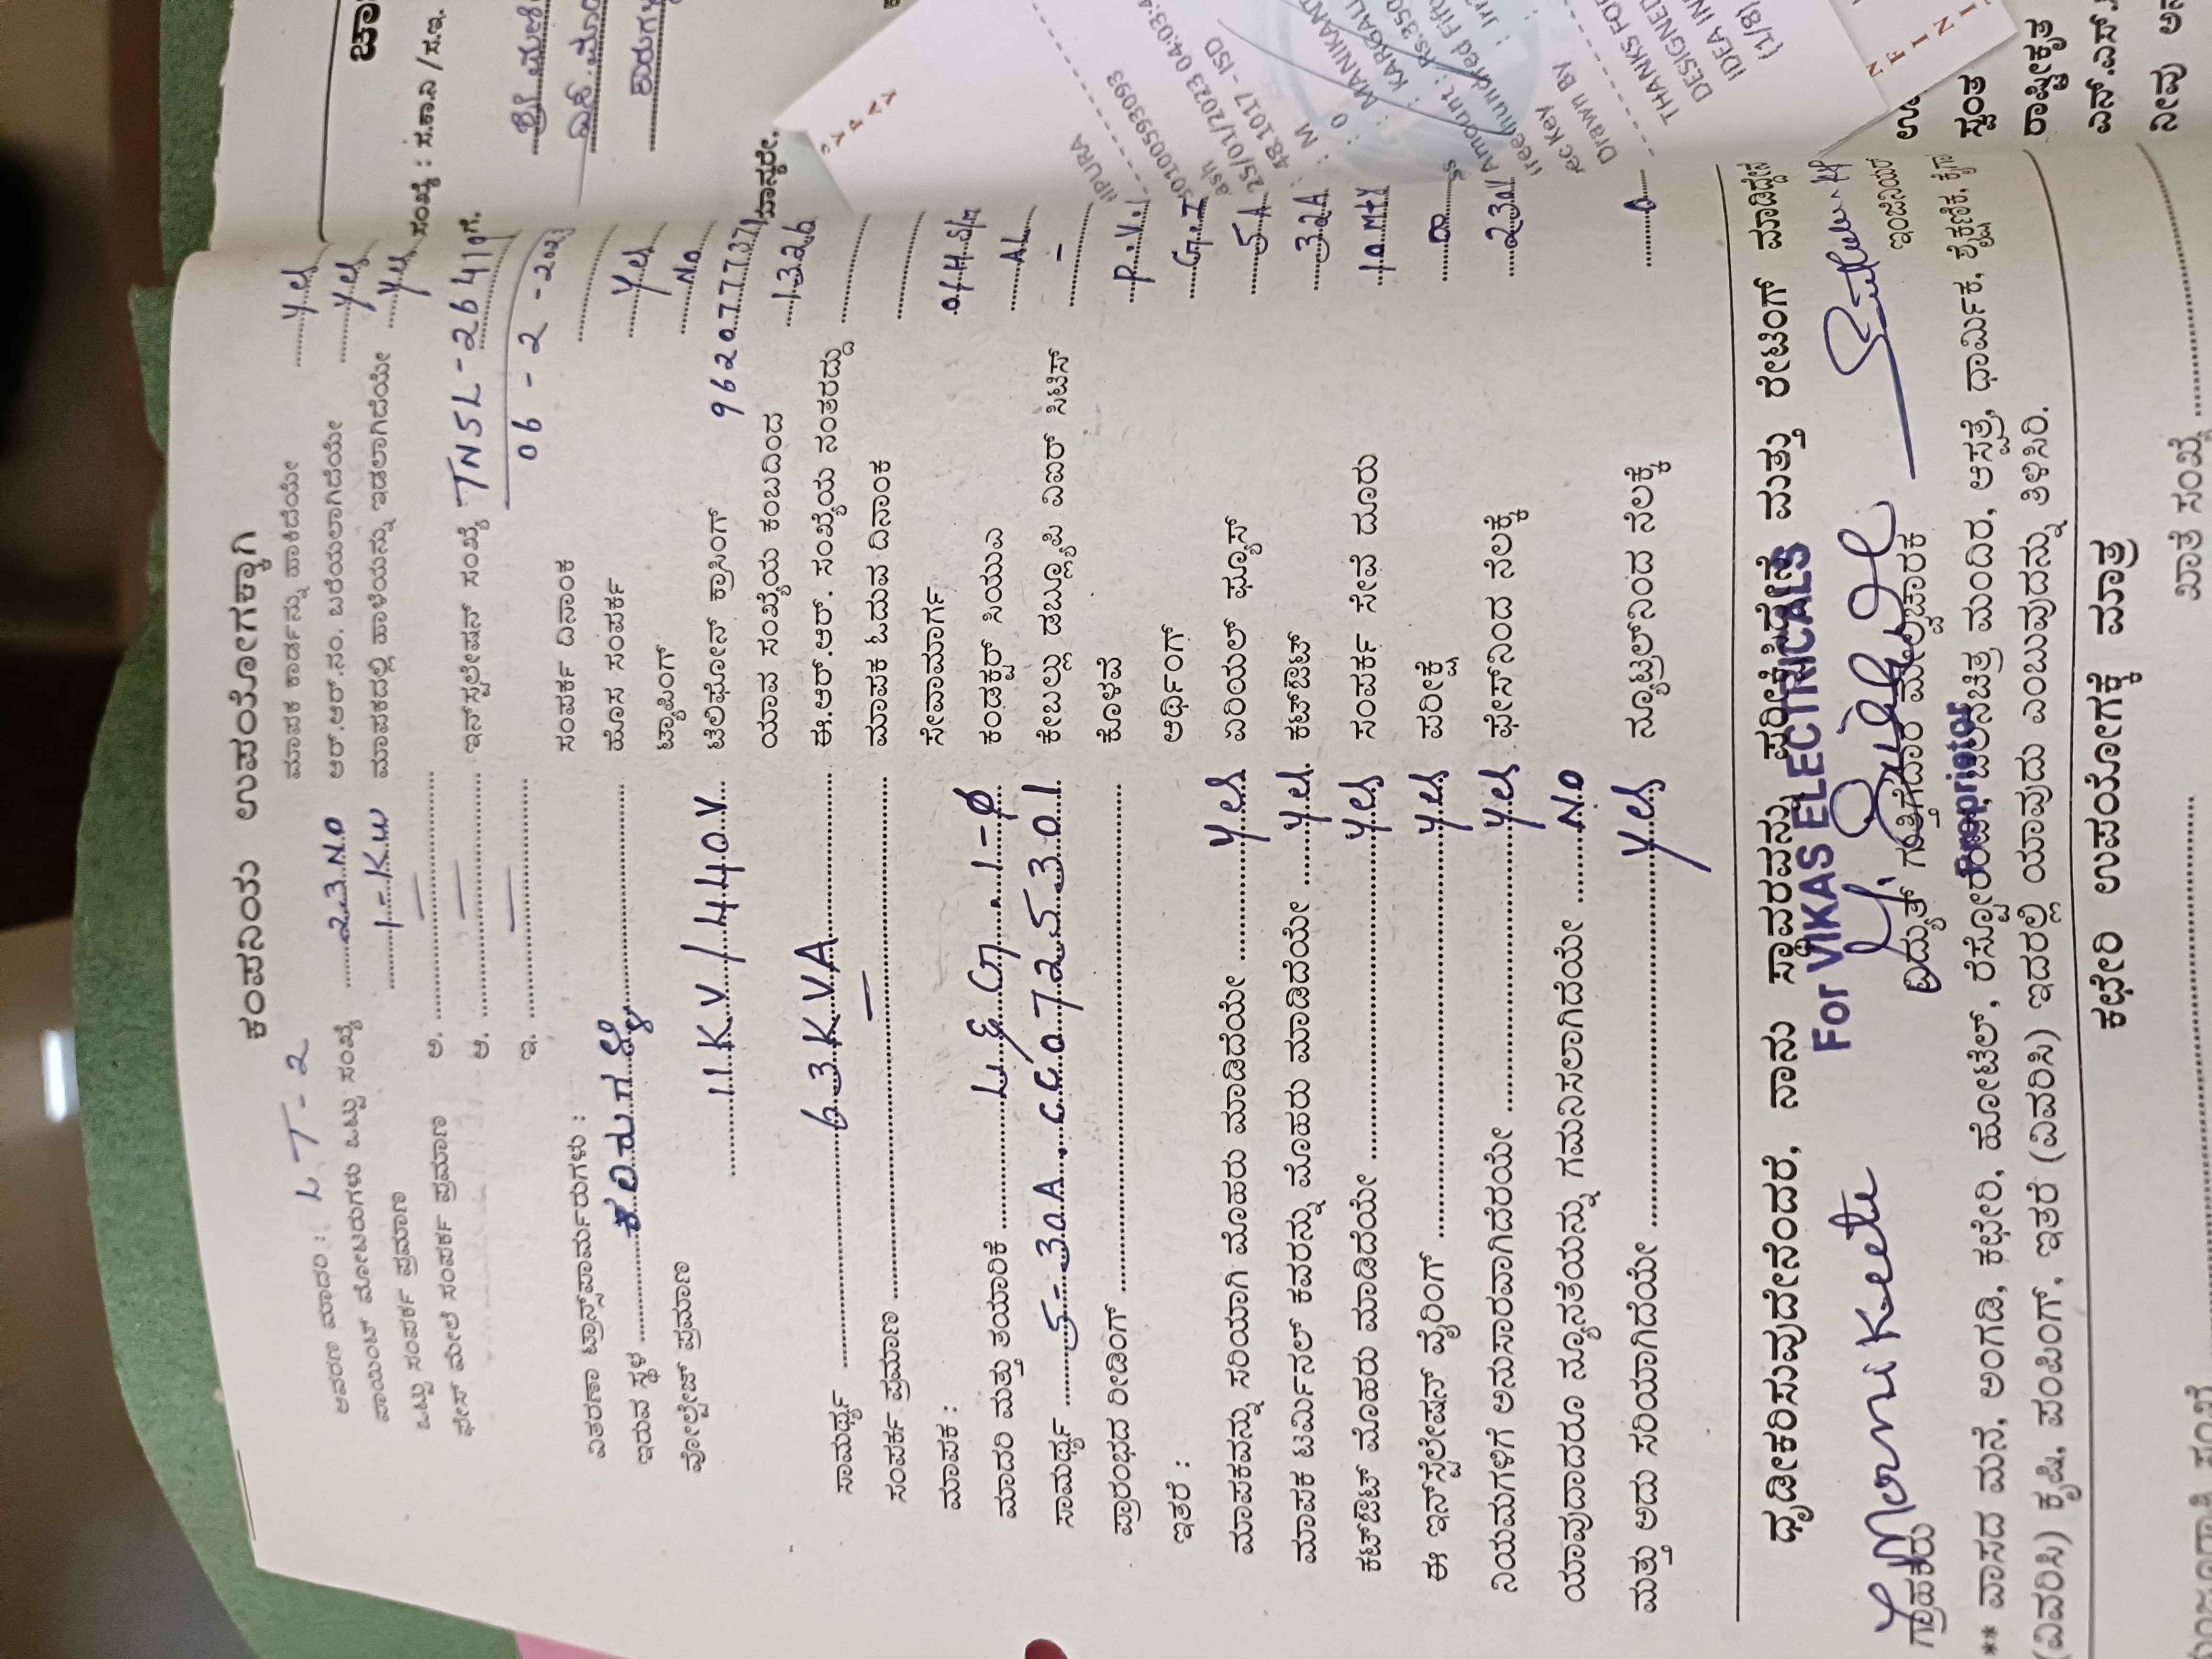 ಕಂಪನಿಯ ಉಪಯೋಗಕ್ಕಾಗಿ
ಆವರಣ ಮಾದರಿ : LT-2
ಮಾಪಕ ಕಾರ್ಡನ್ನು ಹಾಕಿದೆಯೇ Yes
ಪಾಯಿಂಟ್ ಮೋಟರುಗಳು ಒಟ್ಟು ಸಂಖ್ಯೆ 23 No ಆರ್.ಆರ್.ನಂ. ಬರೆಯಲಾಗಿದೆಯೇ Yes
ಒಟ್ಟು ಸಂಪರ್ಕ ಪ್ರಮಾಣ 1-KW ಮಾಪಕದಲ್ಲಿ ಹಾಳೆಯನ್ನು ಇಡಲಾಗಿದೆಯೇ Yes
ಫೇಸ್ ಮೇಲೆ ಸಂಪರ್ಕ ಪ್ರಮಾಣ ಅ. —
ಆ. — ಇನ್‌ಸ್ಟಲೇಷನ್ ಸಂಖ್ಯೆ TNSL-26410
ಇ. — 06-2-2023
ವಿತರಣಾ ಟ್ರಾನ್ಸ್‌ಫಾರ್ಮರುಗಳು : ಸಂಪರ್ಕ ದಿನಾಂಕ
ಇರುವ ಸ್ಥಳ ಹೊಸ ಸಂಪರ್ಕ Yes
ವೋಲ್ಟೇಜ್ ಪ್ರಮಾಣ ಟ್ಯಾಪಿಂಗ್ No
11KV/440V ಟೆಲಿಫೋನ್ ಕ್ರಾಸಿಂಗ್ 9620777371
ಯಾವ ಸಂಖ್ಯೆಯ ಕಂಬದಿಂದ 1326
ಸಾಮರ್ಥ್ಯ 63KVA ಈ.ಆರ್.ಆರ್. ಸಂಖ್ಯೆಯ ನಂತರದ್ದು
ಸಂಪರ್ಕ ಪ್ರಮಾಣ — ಮಾಪಕ ಓದುವ ದಿನಾಂಕ
ಮಾಪಕ : ಸೇವಾಮಾರ್ಗ
ಮಾದರಿ ಮತ್ತು ತಯಾರಿಕೆ L&G 1-Φ ಕಂಡಕ್ಟರ್ ಸಿಯುಎ AL
ಸಾಮರ್ಥ್ಯ 5-30A ಕೇಬಲ್ಲು ಡಬ್ಲ್ಯೂಪಿ ವಿಐಆರ್ ಸಿಟಿಸ್ -
ಪ್ರಾರಂಭದ ರೀಡಿಂಗ್ ಕೊಳವೆ P.V.
ಇತರೆ : ಅರ್ಥಿಂಗ್ G.I
ಮಾಪಕವನ್ನು ಸರಿಯಾಗಿ ಮೊಹರು ಮಾಡಿದೆಯೇ Yes ಏರಿಯಲ್ ಫ್ಯೂಸ್ 5A
ಮಾಪಕ ಟರ್ಮಿನಲ್ ಕವರನ್ನು ಮೊಹರು ಮಾಡಿದೆಯೇ Yes ಕಟ್‌ಔಟ್ 32A
ಕಟ್‌ಔಟ್ ಮೊಹರು ಮಾಡಿದೆಯೇ Yes ಸಂಪರ್ಕ ಸೇವೆ ದೂರು 10 Mtr
ಈ ಇನ್‌ಸ್ಟಲೇಷನ್ ವೈರಿಂಗ್ Yes ಪರೀಕ್ಷೆ
ನಿಯಮಗಳಿಗೆ ಅನುಸಾರವಾಗಿದೆರಯೇ Yes ಫೇಸ್‌ನಿಂದ ನೆಲಕ್ಕೆ 230
ಯಾವುದಾದರೂ ನ್ಯೂನತೆಯನ್ನು ಗಮನಿಸಲಾಗಿದೆಯೇ No
ಮತ್ತು ಅದು ಸರಿಯಾಗಿದೆಯೇ Yes ನ್ಯೂಟ್ರಲ್‌ನಿಂದ ನೆಲಕ್ಕೆ 0
ಧೃಡೀಕರಿಸುವುದೇನೆಂದರೆ, ನಾನು ಸ್ಥಾವರವನ್ನು ಪರೀಕ್ಷಿಸಿದ್ದೇನೆ ಮತ್ತು ರೇಟಿಂಗ್ ಮಾಡಿದ್ದೇನೆ
For VIKAS ELECTRICALS
ಗ್ರಾಹಕರು ವಿದ್ಯುತ್ ಗುತ್ತಿಗೆದಾರ ಮೇಲ್ವಿಚಾರಕ ಇಂಜಿನಿಯರ್
Proprietor
** ವಾಸದ ಮನೆ, ಅಂಗಡಿ, ಕಛೇರಿ, ಹೋಟೆಲ್, ರೆಸ್ಟೋರೆಂಟ್, ಚಲನಚಿತ್ರ ಮಂದಿರ, ಆಸ್ಪತ್ರೆ, ಧಾರ್ಮಿಕ, ಶೈಕ್ಷಣಿಕ, ಕೈಗಾ
(ವಿವರಿಸಿ) ಕೃಷಿ, ಪಂಪಿಂಗ್, ಇತರೆ (ವಿವರಿಸಿ) ಇದರಲ್ಲಿ ಯಾವುದು ಎಂಬುವುದನ್ನು ತಿಳಿಸಿರಿ.
ಕಛೇರಿ ಉಪಯೋಗಕ್ಕೆ ಮಾತ್ರ
ಖಾತೆ ಸಂಖ್ಯೆ
ಸಂಖ್ಯೆ : ಸ.ಕಾ.ಎ / ಸ.ಇ.
ಗೆ.
ಮಾನ್ಯರೇ,
25/01/2023 04:03:4
48.1017 - ISD
: MANIKANT
Amount : Rs.350
Drawn BY
THANKS FOR
DESIGNED
IDEA IN
(1/8)
ಸ್ವಂತ
ರಾಷ್ಟ್ರೀಕೃತ
ಎನ್.ಎಸ್.
ನೀವು